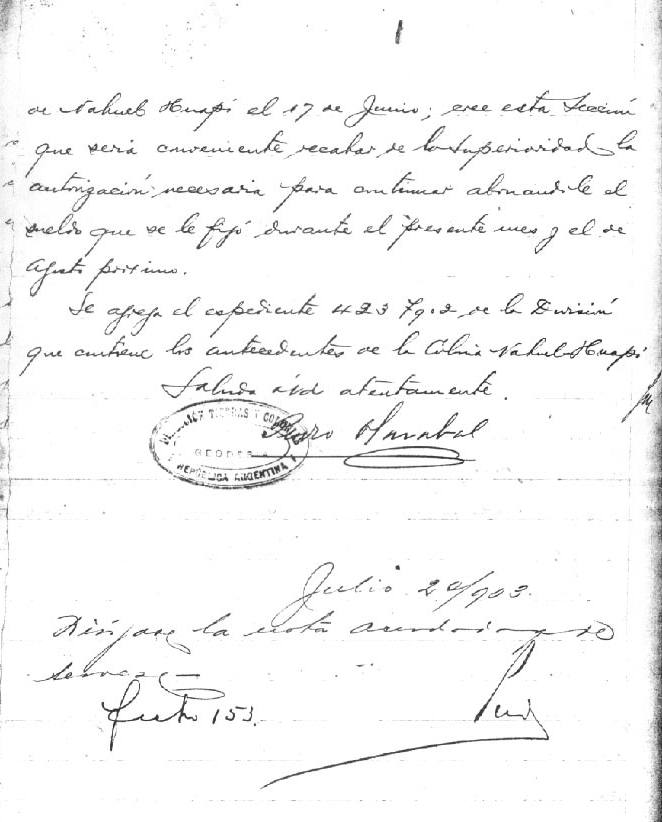 de Nahuel Huapí el 17 de Junio; cree esta Sección
que sería conveniente recabar de la Superioridad la
autorización necesaria para continuar abonandole el
sueldo que se le fijó durante el presente mes y el de
Agosto próximo.
Se agrega el expediente 423 7902 de la División
que contiene los antecedentes de la Colonia Nahuel Huapí
Saluda á Vd atentamente.
TIERRAS Y COLONIAS
GEODESIA
REPUBLICA ARGENTINA
Pedro
Julio 20/903.
Diríjase la nota
153.